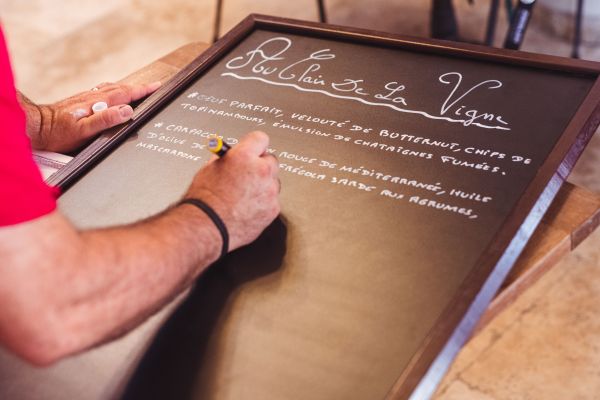 Au Clair De La Vigne
* OEUF PARFAIT, VELOUTÉ DE BUTTERNUT, CHIPS DE
TOPINAMBOURS, ÉMULSION DE CHATAIGNES FUMÉES.
* CARPACCIO ROUGE DE MÉDITERRANÉE, HUILE
D'OLIVE FREGOLA SARDE AUX AGRUMES,
MASCARPONE